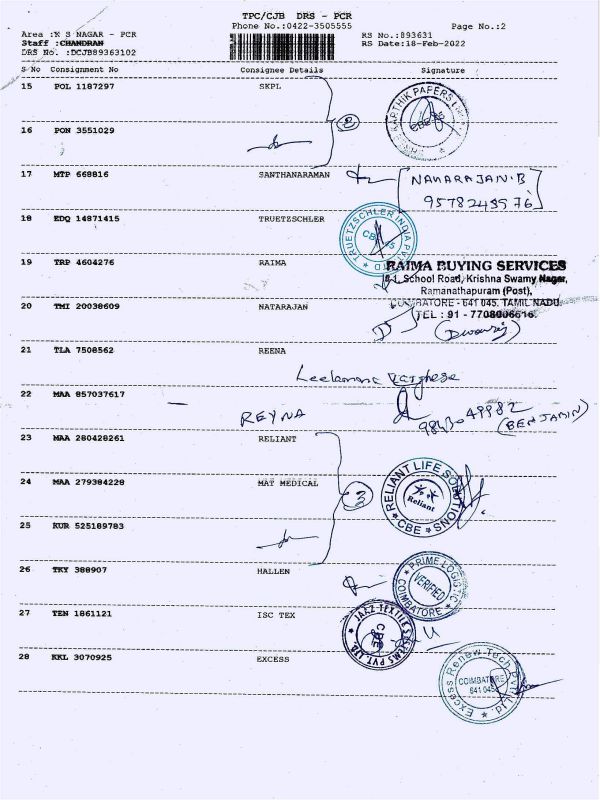 TPC/CJB DRS - PCR
Phone No.:0422-3505555
Page No.:2
Area :K S NAGAR - PCR
RS No.:893631
Staff :CHANDRAN
RS Date:18-Feb-2022
DRS No. :DCJB89363102
S No Consignment No Consignee Details Signature
15 POL 1187297 SKPL
KARTHIK PAPERS
2
16 PON 3551029
17 MTP 668816 SANTHANARAMAN
NAHARAJAN.B
18 EDQ 14871415 TRUETZSCHLER
TRUETZSCHLER INDIA PVT LTD
19 TRP 4604276 RAIMA
RAIMA BUYING SERVICES
School Road, Krishna Swamy Nagar,
Ramanathapuram (Post),
COIMBATORE - 641 045. TAMIL NADU
TEL : 91 - 7708006616.
20 TMI 20038609 NATARAJAN
21 TLA 7508562 REENA
Leelamma Varghese
22 MAA 857037617
REYNA
9843049982
(BENJAMIN)
23 MAA 280428261 RELIANT
24 MAA 279384228 MAT MEDICAL
3
RELIANT LIFE SOLUTIONS
Reliant
CBE
25 KUR 525189783
26 TKY 388907 HALLEN
PRIME LOGISTIC
VERIFIED
COIMBATORE
27 TEN 1861121 ISC TEX
TEXTILE SYSTEMS PVT. LTD.
CBE
28 KKL 3070925 EXCESS
Excess Renew Tech Pvt Ltd
COIMBATORE
641 045